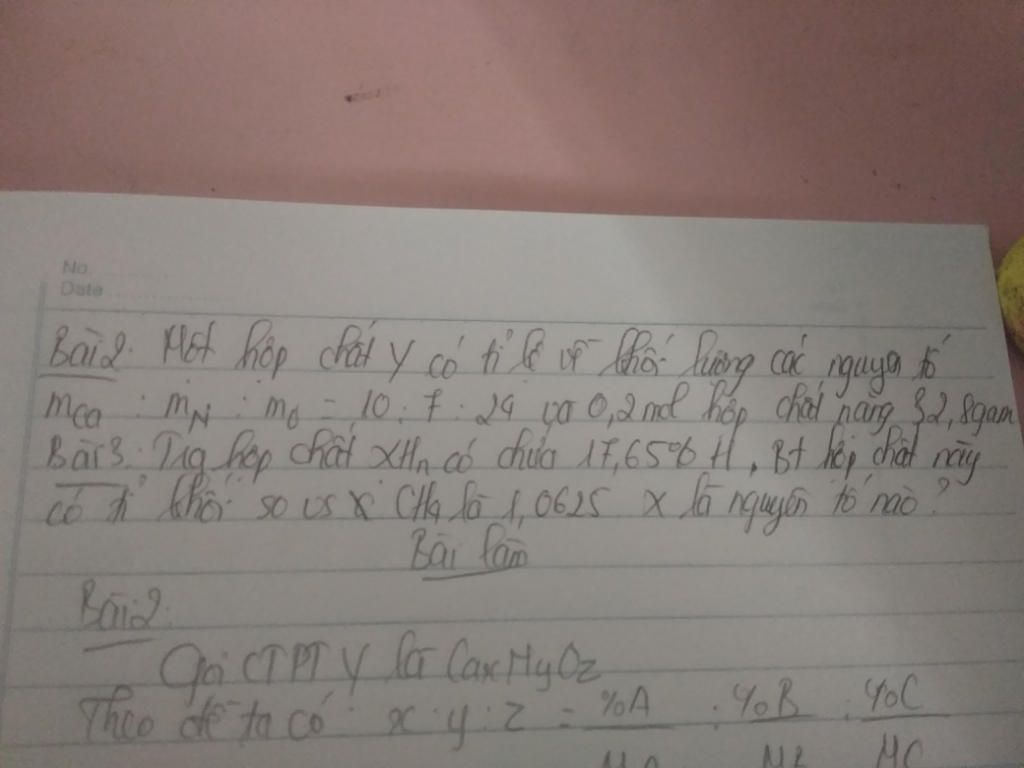 No.
Date
Bài 2: Một hợp chất Y có tỉ lệ về khối lượng các nguyên tố
mCa : mN : mO = 10 : 7 : 24 và 0,2 mol hợp chất nặng 32,8 gam
Bài 3: Trg hợp chất XHn có chứa 17,65% H, Bt hợp chất này
có tỉ khối so vs CH4 là 1,0625 X là nguyên tố nào?
Bài làm
Bài 2:
Gọi CTPT Y là CaxNyOz
Theo đề ta có x : y : z = %A : %B : %C
MA MB MC